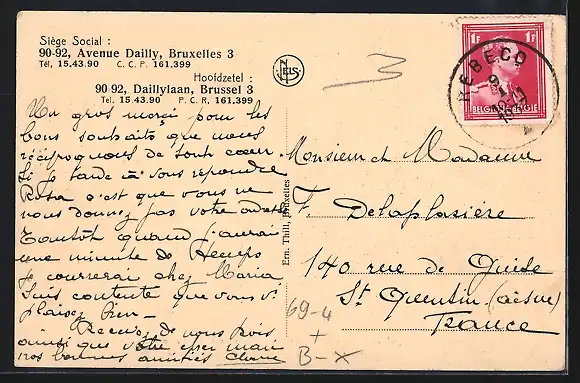 Siège Social :
90-92, Avenue Dailly, Bruxelles 3
Tél, 15.43.90 C. C. P. 161.399
Hoofdzetel :
90 92, Daillylaan, Brussel 3
Tel. 15.43.90 P. C. R. 161.399
NELS
1F 1F
BELGIE-BELGIQUE
REBECQ
Un gros merçi pour les
bons souhaits que nous
réciproquons de tout cœur.
Si je tarde à vous répondre
Rosa c'est que vous ne
nous donnez pas votre adresse
Tantôt quand j'aurai
une minute de temps
je courrerai chez Maria
Suis contente que vous v.
plaisez bien —
Recevez de nous trois
ainsi que votre cher mari
nos bonnes amitiés
Ern. Thill, Bruxelles
Monsieur et Madame
F. Delaplasière
140 rue de Guise
St Quentin (Aisne)
France
69-4
+
B-X